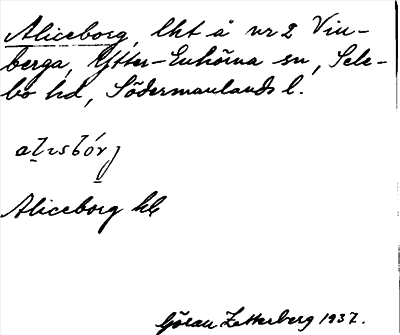 Aliceborg, lht å nr 2 Vin-
berga, Ytter-Enhörna sn, Sele-
bo hd, Södermanlands l.
Aliceborg hb
Göran Zetterberg 1937.